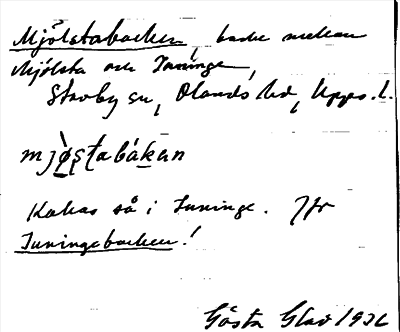 Mjölstabacken, backe mellan
Mjölsta och Tuninge,
Skoby sn, Olands hd, Upps. l.
mjø̀ṣṭabákan
Kallas så i Tuninge. Jfr
Tuningebacken!
Gösta Glad 1932